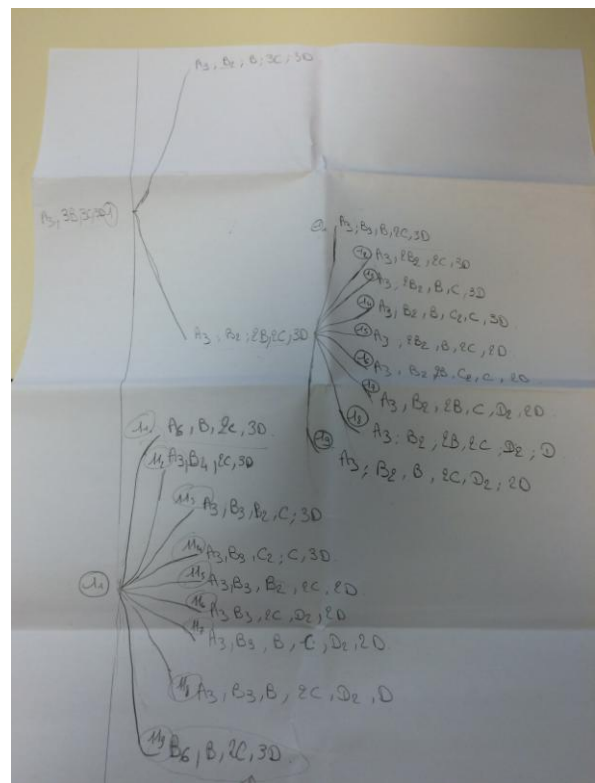 A3, B2, B, 3C, 3D
A3, 3B, 3C, 3D
A3, B3, B, 2C, 3D
12 A3, 2B2, 2C, 3D
13 A3, 2B2, B, C, 3D
14 A3, B2, B, C2, C, 3D
15 A3, 2B2, B, 2C, 2D
A3; B2; 2B, 2C, 3D
16 A3, B2, 2B, C2, C, 2D
A3, B2, 2B, C, D2, 2D
18 A3; B2, 2B, 2C, D2; D
19 A3; B2, B, 2C, D2; 2D
11 A6, B, 2C, 3D
112 A3, B4, 2C, 3D
113 A3, B3, B2, C; 3D
114 A3, B3, C2; C, 3D
115 A3, B3, B2, 2C, 2D
116 A3, B3, 2C, D2, 2D
117 A3, B3, B, C, D2, 2D
118 A3, B3, B, 2C, D2, D
119 B6, B, 2C, 3D